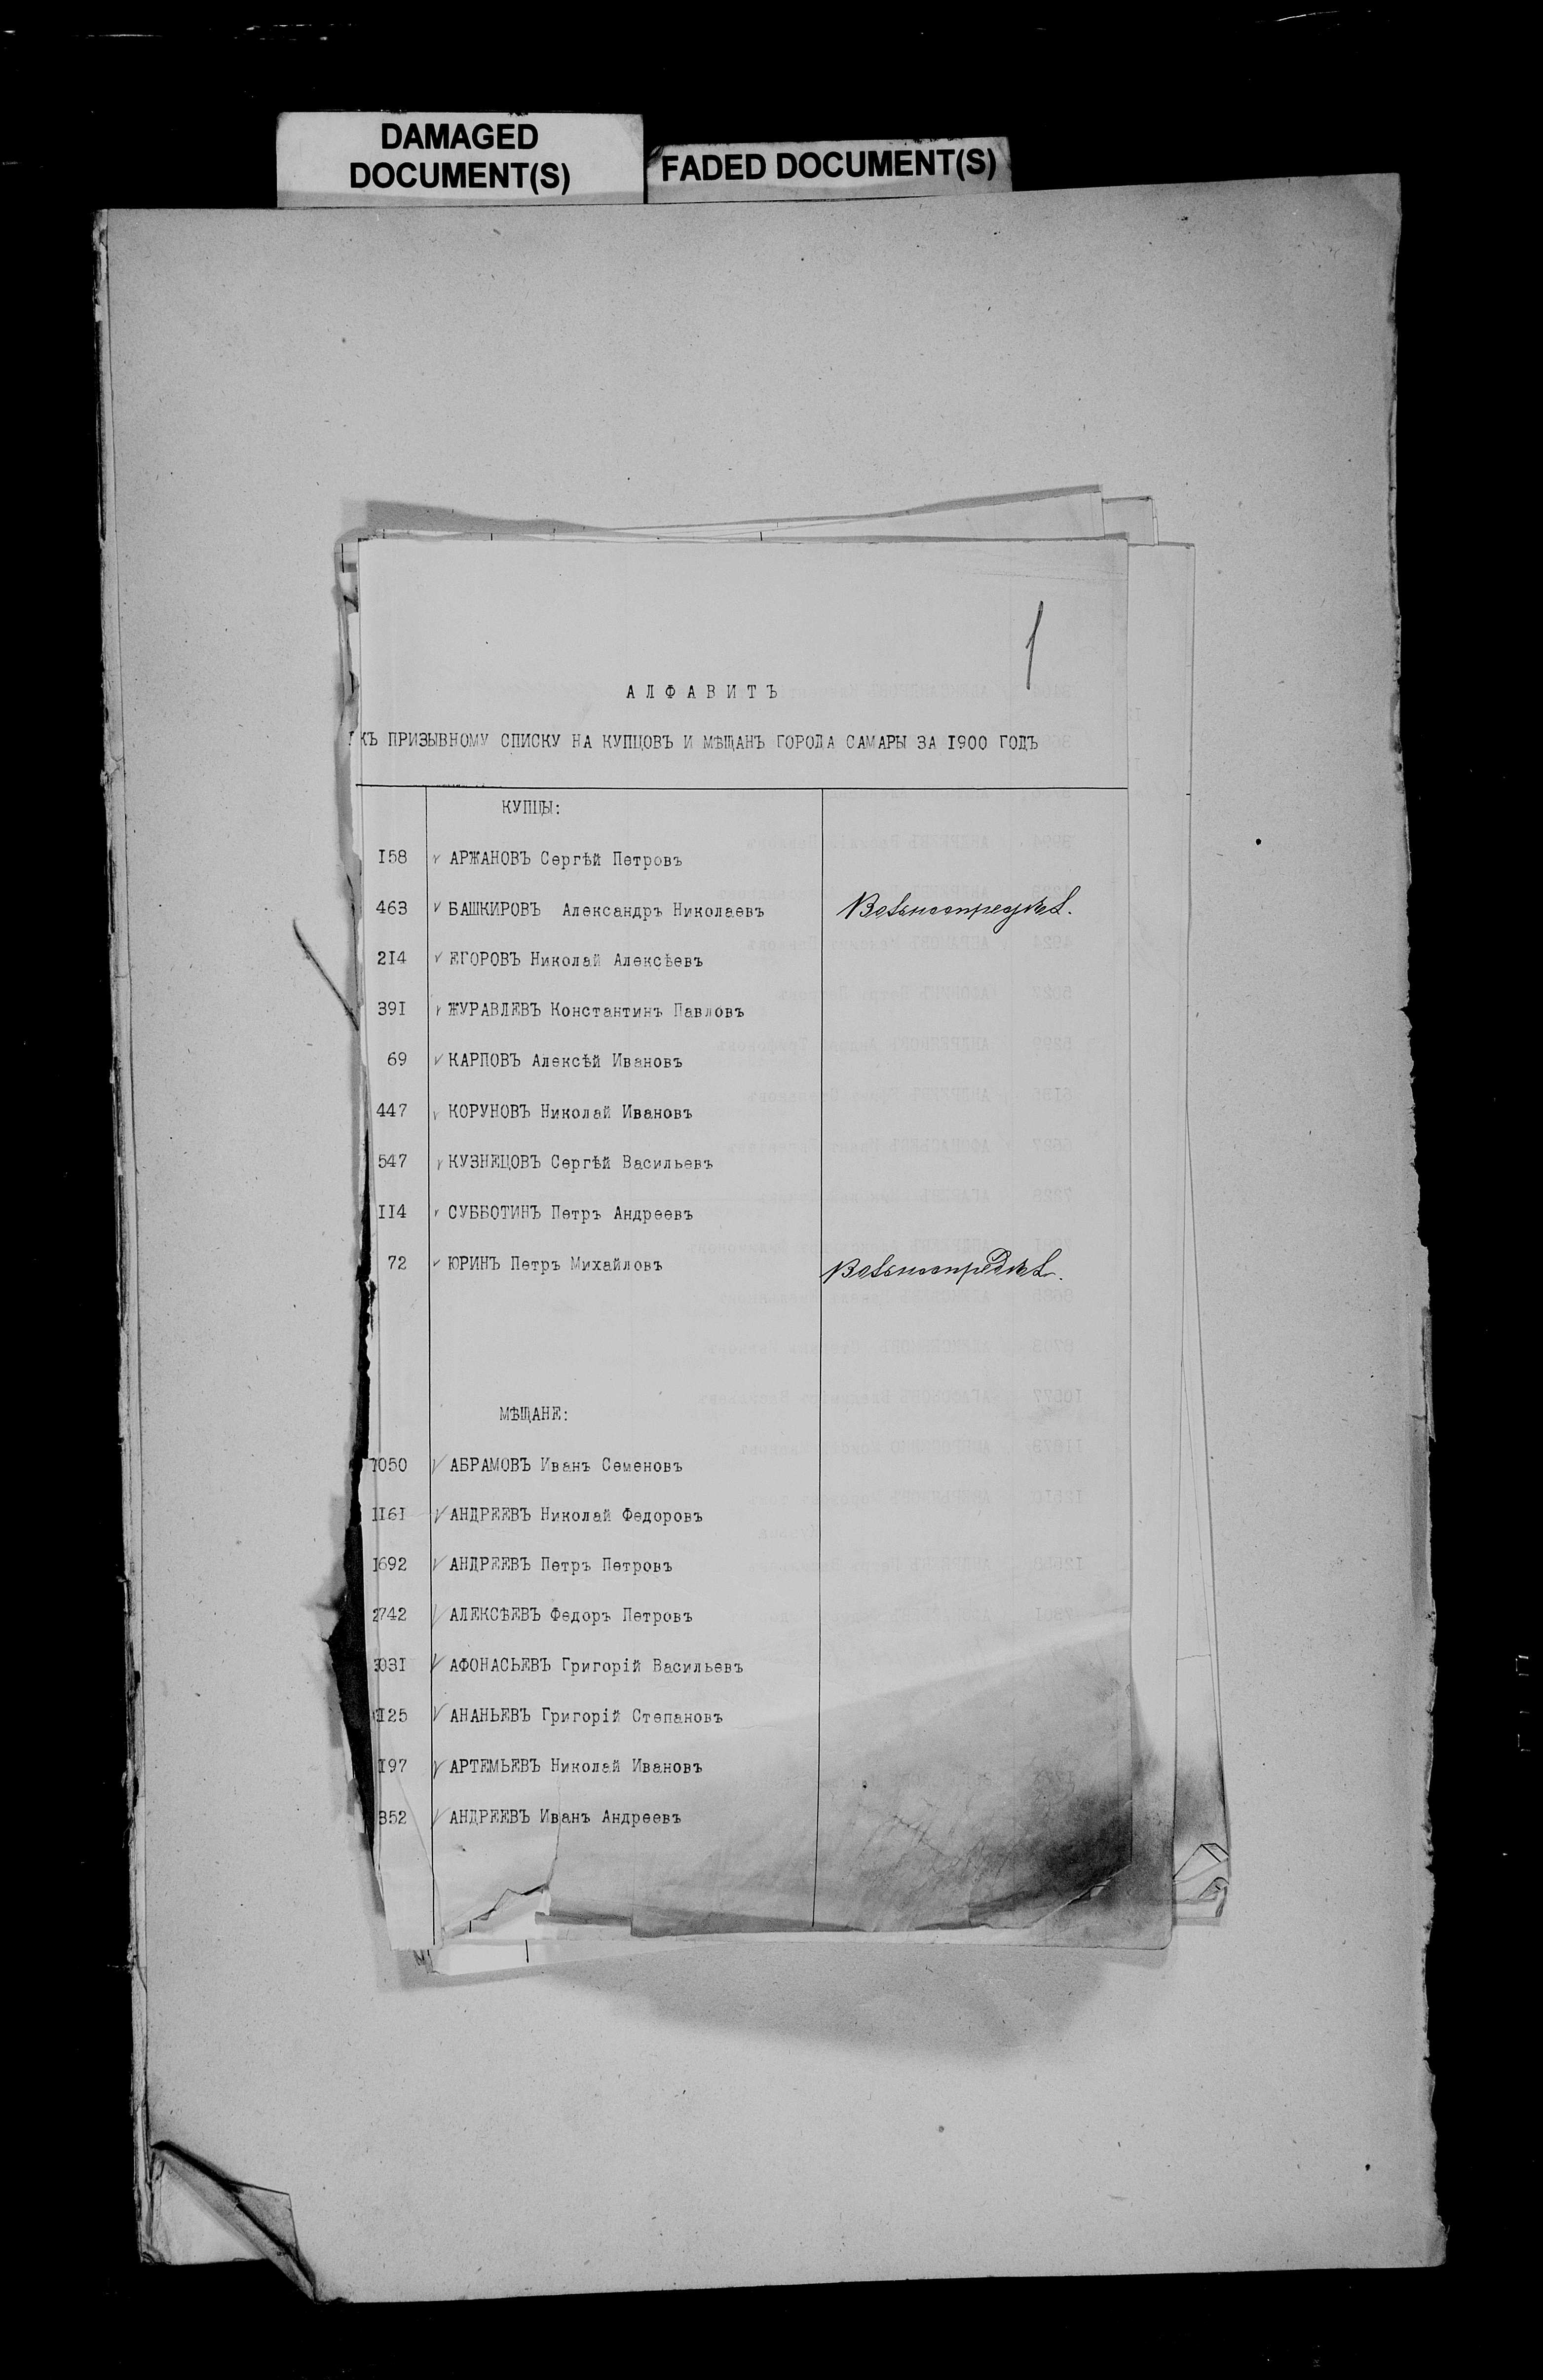 DAMAGED
DOCUMENT(S)
FADED DOCUMENT(S)
1
АЛФАВИТЪ
КЪ ПРИЗЫВНОМУ СПИСКУ НА КУПЦОВЪ И МѢЩАНЪ ГОРОДА САМАРЫ ЗА 1900 ГОДЪ
КУПЦЫ:
158 АРЖАНОВЪ Сергѣй Петровъ
463 БАШКИРОВЪ Александръ Николаевъ Вольноопредѣл.
214 ЕГОРОВЪ Николай Алексѣевъ
391 ЖУРАВЛЕВЪ Константинъ Павловъ
69 КАРПОВЪ Алексѣй Ивановъ
447 КОРУНОВЪ Николай Ивановъ
547 КУЗНЕЦОВЪ Сергѣй Васильевъ
114 СУББОТИНЪ Петръ Андреевъ
72 ЮРИНЪ Петръ Михайловъ Вольноопредѣл.
МѢЩАНЕ:
1050 АБРАМОВЪ Иванъ Семеновъ
1161 АНДРЕЕВЪ Николай Федоровъ
1692 АНДРЕЕВЪ Петръ Петровъ
2742 АЛЕКСѢЕВЪ Федоръ Петровъ
3031 АФОНАСЬЕВЪ Григорій Васильевъ
АНАНЬЕВЪ Григорій Степановъ
АРТЕМЬЕВЪ Николай Ивановъ
АНДРЕЕВЪ Иванъ Андреевъ